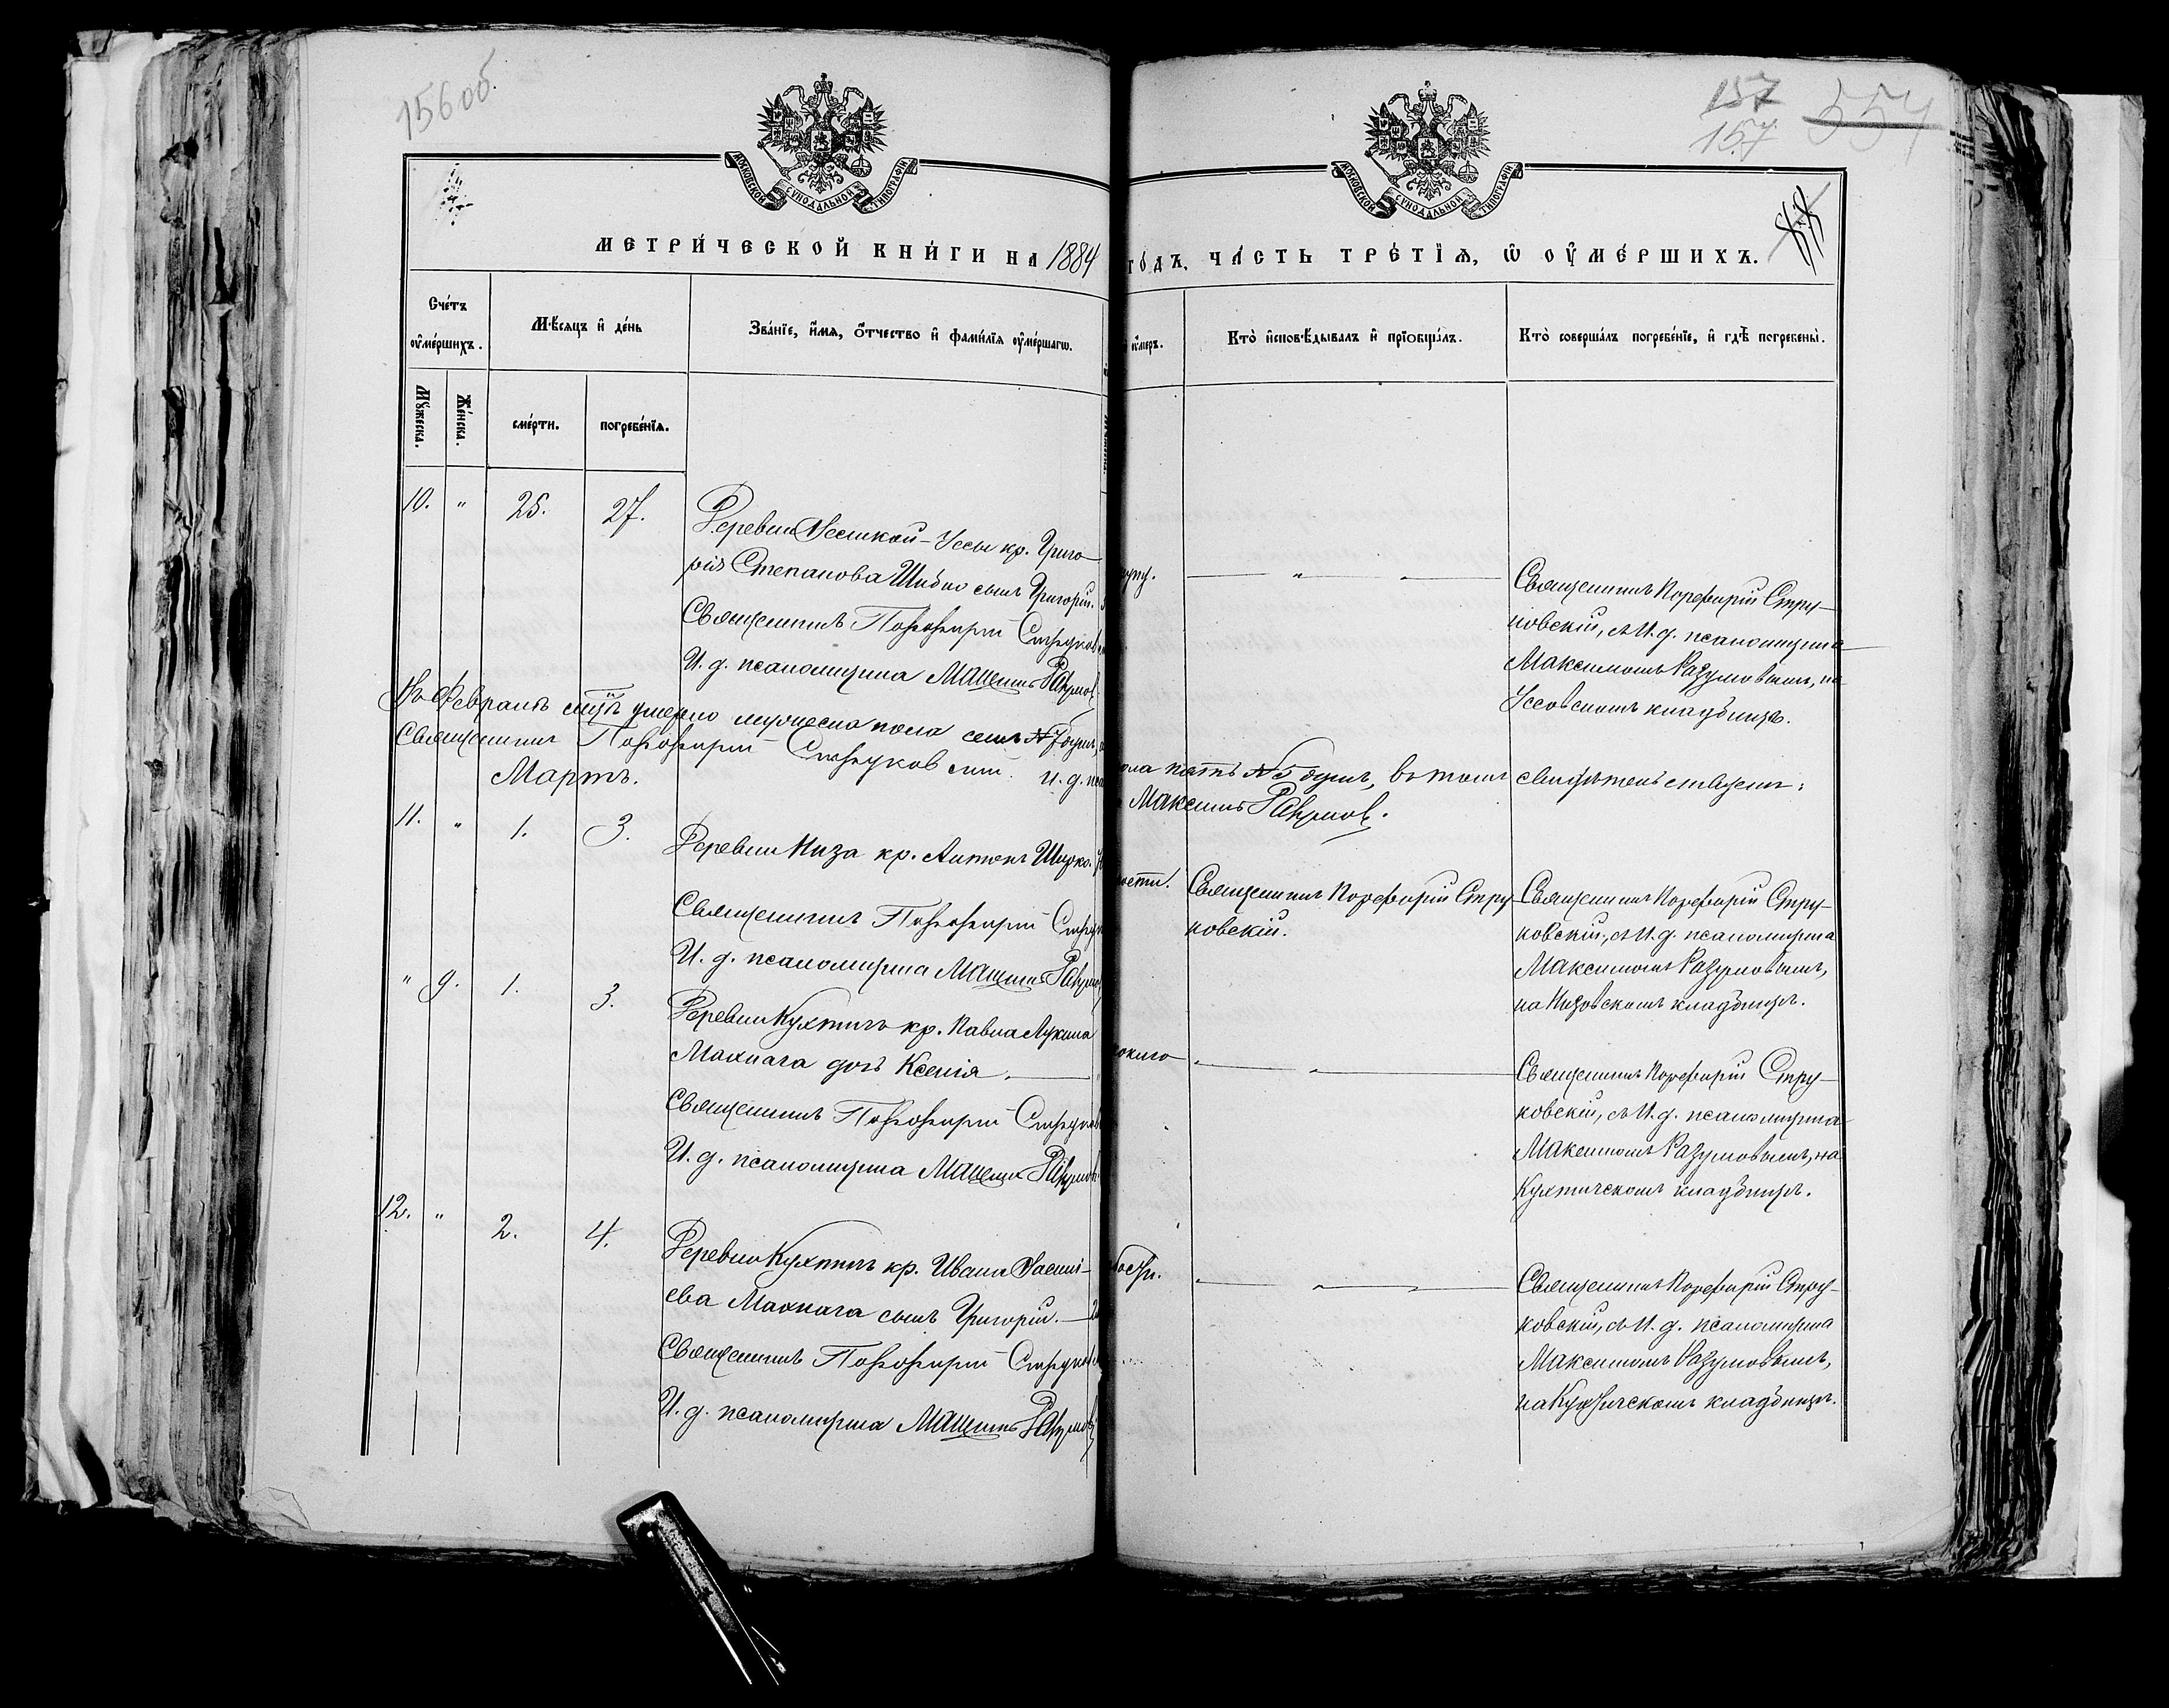 156 об.
157
157
554
МОСКОВСКОЙ СѴНОДАЛЬНОЙ ТИПОГРАФІИ
МОСКОВСКОЙ СѴНОДАЛЬНОЙ ТИПОГРАФІИ
МЕТРИ́ЧЕСКОЙ КНИ́ГИ НА 1884
ГО́ДЪ, ЧА́СТЬ ТРЕ́ТІѦ, Ѡ ОУМЕ́РШИХЪ.
Сче́тъ
оуме́ршихъ.
Мꙋжеска.
Же́нска.
Мѣ́сяцъ и де́нь
сме́рти.
погребе́нїѧ.
Зва́нїе, и́мѧ, о́тчество и фами́лїѧ оуме́ршагѡ.
Кто̀ и҆сповѣ́дывалъ и҆ прїобща́лъ.
Кто̀ соверша́лъ погребе́нїе, и҆ гдѣ̀ погребены̀.
10. " 25. 27.
Деревни Великой-Уссы кр. Григо-
рія Степанова Шибко сынъ Григорій.
Священникъ Порфирій Струков
И. д. псаломщика Максимъ Разумов
Священникъ Порфирій Стру-
ковскій, съ И. д. псаломщика
Максимомъ Разумовымъ, на
Уссовскомъ кладбищѣ.
Въ Февралѣ мцѣ умерло мужеска пола семь №7 душъ,
ола пять №5 душъ, въ томъ свидѣтельствуемъ:
Священникъ Порфирій Струковскій. И. д. пса
Максимъ Разумов.
Мартъ.
11. " 1. 3.
Деревни Низа кр. Антонъ Шидко.
Священникъ Порфирій Струк
И. д. псаломщика Максимъ Разумо
ости.
Священникъ Порфирій Стру-
ковскій.
Священникъ Порфирій Стру-
ковскій, съ И. д. псаломщика
Максимомъ Разумовымъ,
на Низовскомъ кладбищѣ.
" 9. 1. 3.
Деревни Кухтичъ кр. Павла Лукина
Махнача дочь Ксенія.
Священникъ Порфирій Струков
И. д. псаломщика Максимъ Разумов
Священникъ Порфирій Стру-
ковскій, съ И. д. псаломщика
Максимомъ Разумовымъ, на
Кухтичскомъ кладбищѣ.
12. " 2. 4.
Деревни Кухтичъ кр. Ивана Василь-
ева Махнача сынъ Григорій.
Священникъ Порфирій Струков
И. д. псаломщика Максимъ Разумов
Священникъ Порфирій Стру-
ковскій, съ И. д. псаломщика
Максимомъ Разумовымъ,
на Кухтичскомъ кладбищѣ.